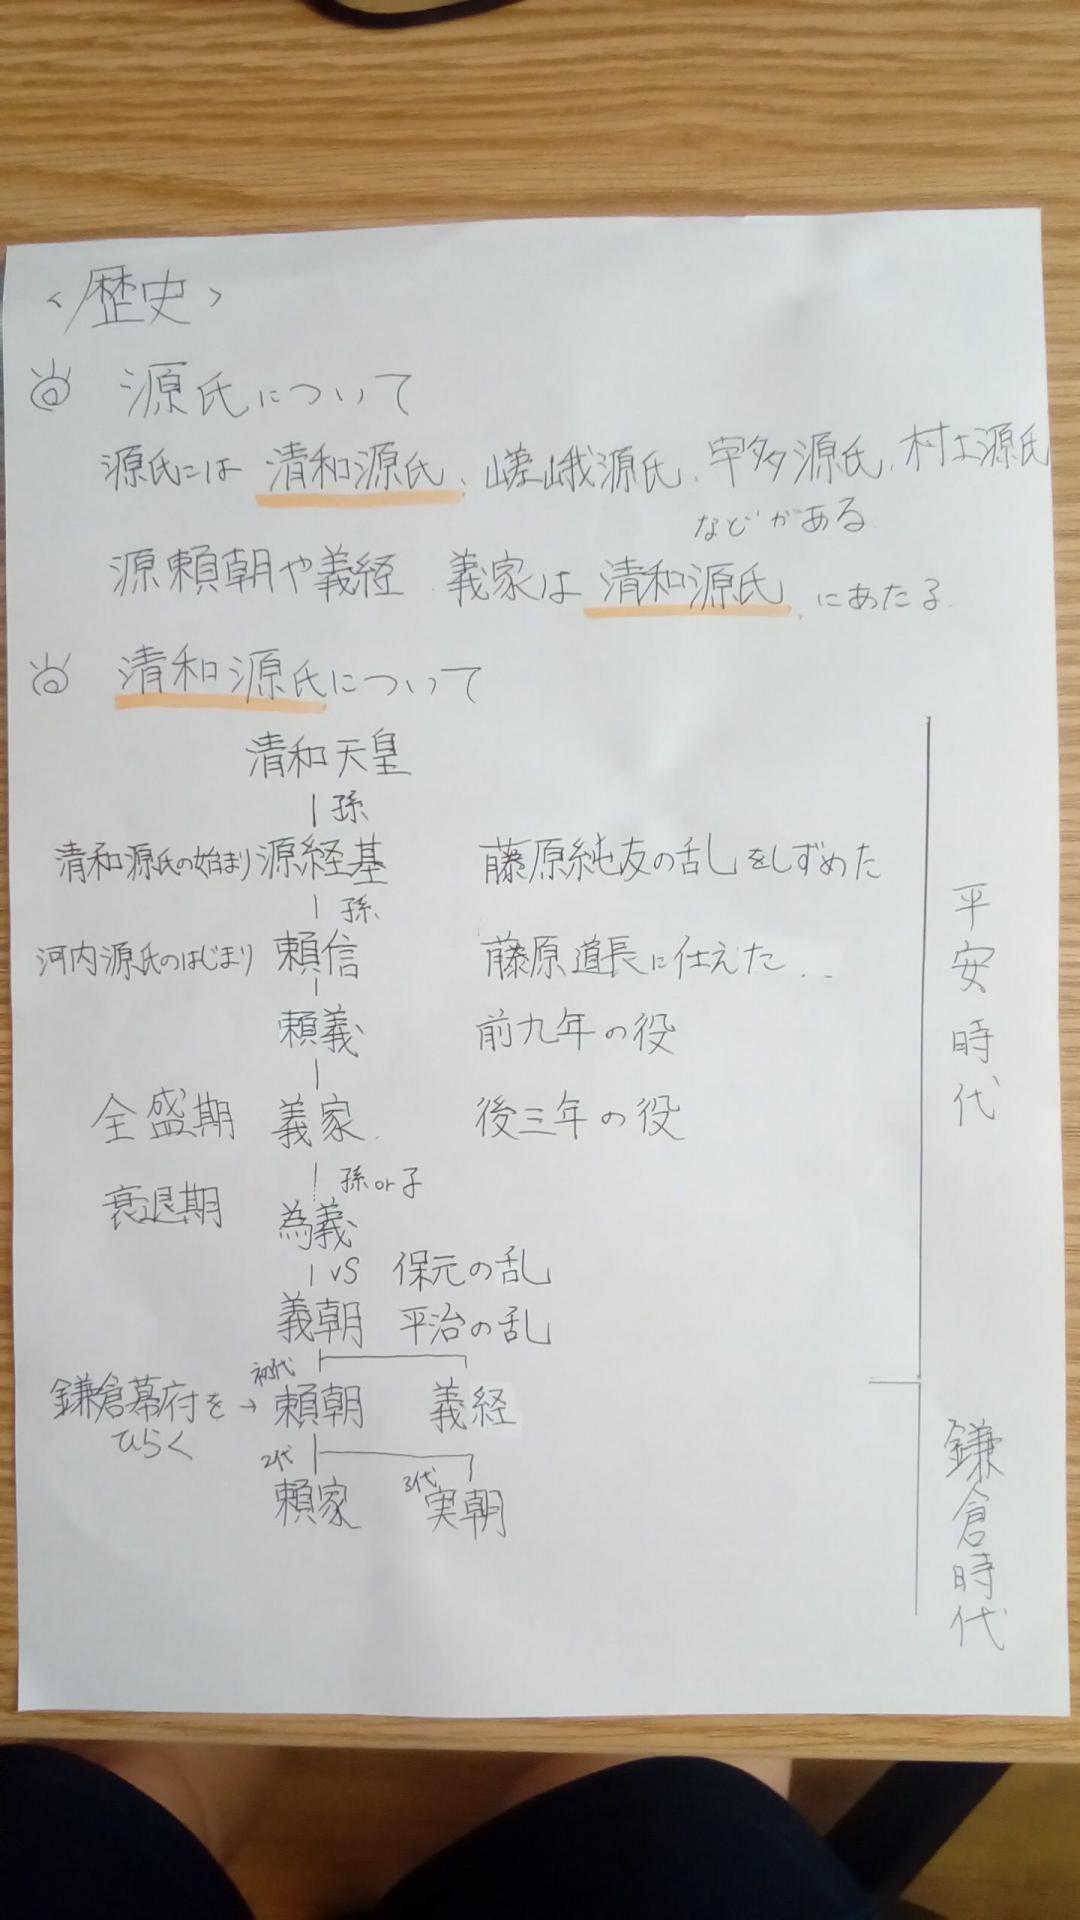 <歴史>
源氏について
源氏には 清和源氏、嵯峨源氏、宇多源氏、村上源氏
などがある
源頼朝や義経 義家は 清和源氏、にあたる
清和源氏について
清和天皇
孫
清和源氏の始まり 源経基 藤原純友の乱をしずめた
孫
河内源氏のはじまり 頼信 藤原道長に仕えた...
頼義 前九年の役
全盛期 義家 後三年の役
孫or子
衰退期 為義
vs 保元の乱
義朝 平治の乱
初代
鎌倉幕府を→ 頼朝 義経
ひらく
2代 3代
頼家 実朝
平安時代
鎌倉時代